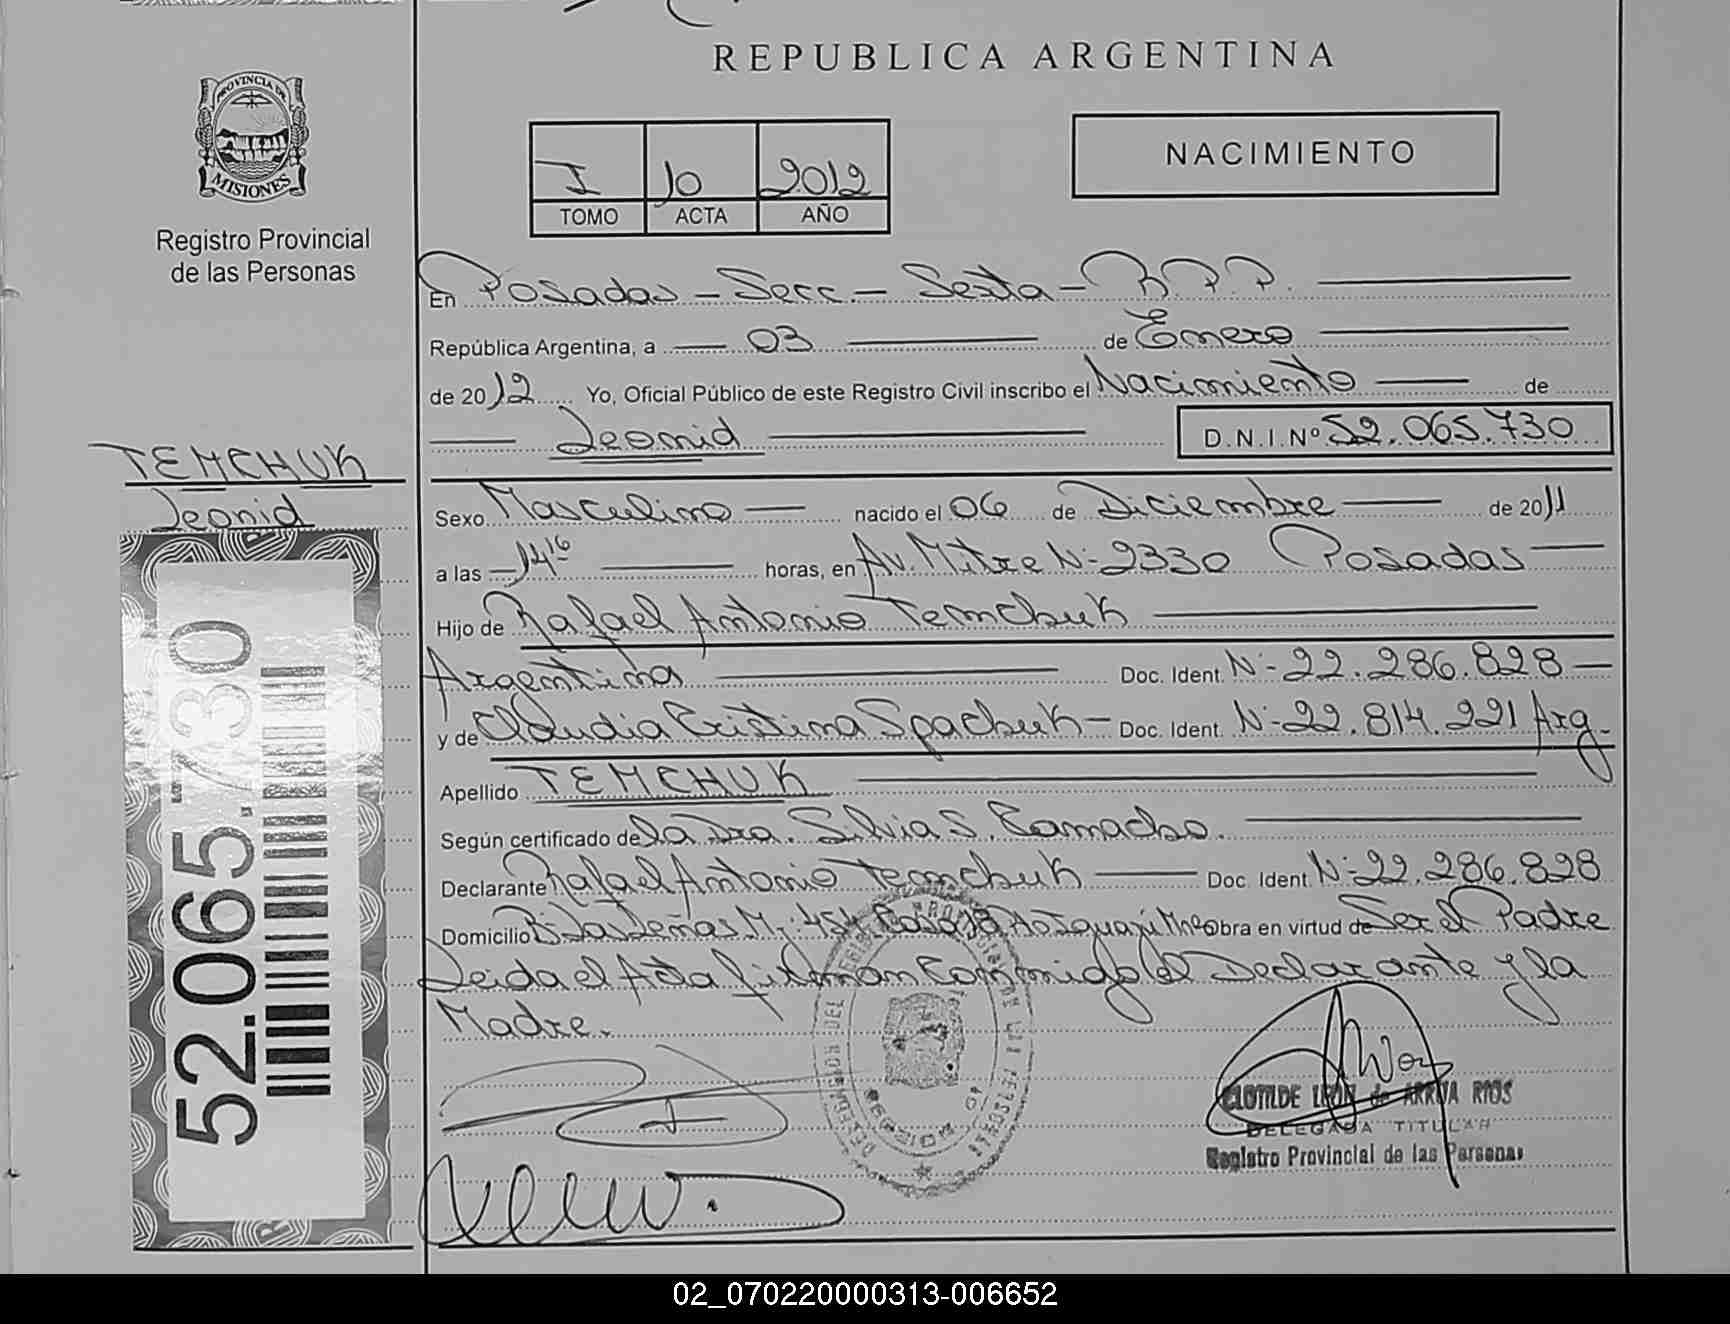 REPUBLICA ARGENTINA
PROVINCIA DE
MISIONES
Registro Provincial
de las Personas
I 10 2012
TOMO ACTA AÑO
NACIMIENTO
En Posadas - Secc. - Sexta - R.P.P.
República Argentina, a 03 de Enero
de 2012 Yo, Oficial Público de este Registro Civil inscribo el Nacimiento de
Leonid D.N.I.Nº 52.065.730
TEMCHUK
Leonid
52.065.730
Sexo Masculino nacido el 06 de Diciembre de 2011
a las 14 16 horas, en Av. Mitre Nº 2330 Posadas
Hijo de Rafael Antonio Temchuk
Argentina Doc. Ident. Nº 22.286.828
y de Claudia Cristina Spachuk Doc. Ident. Nº 22.814.221 Arg.
Apellido TEMCHUK
Según certificado de la Dra. Silvia S. Camacho.
Declarante Rafael Antonio Temchuk Doc. Ident. Nº 22.286.828
Domicilio Bº Las Deñas Mz 454 Casa Obra en virtud de Ser el Padre
Leida el Acta firman Conmigo el Declarante y la
Madre.
CLOTILDE LEON de ARRUA RIOS
DELEGADA TITULAR
Registro Provincial de las Personas
02_070220000313-006652